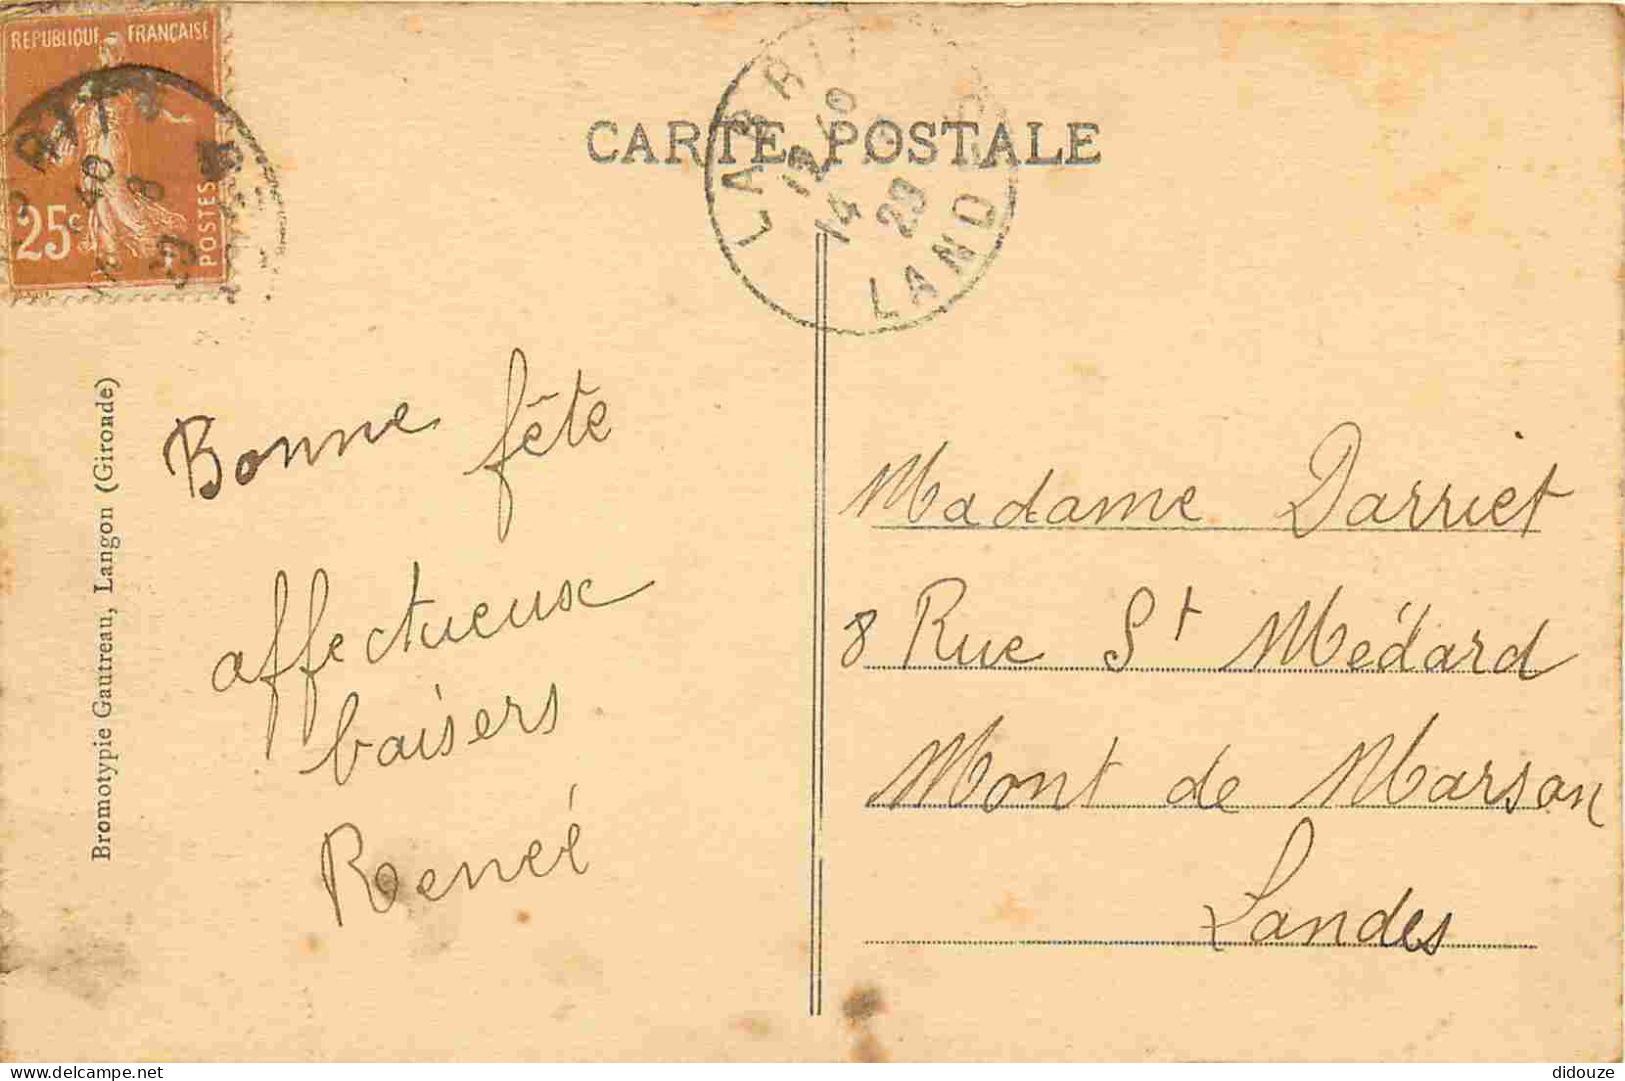 REPUBLIQUE FRANÇAISE
25c
POSTES
CARTE POSTALE
LABRIT
14 8
29
LANDES
Bromotypie Gautreau, Langon (Gironde)
Bonne fête
affectueux
baisers
Reneé
Madame Darriet
8 Rue St Médard
Mont de Marsan
Landes
delcampe.net
didouze